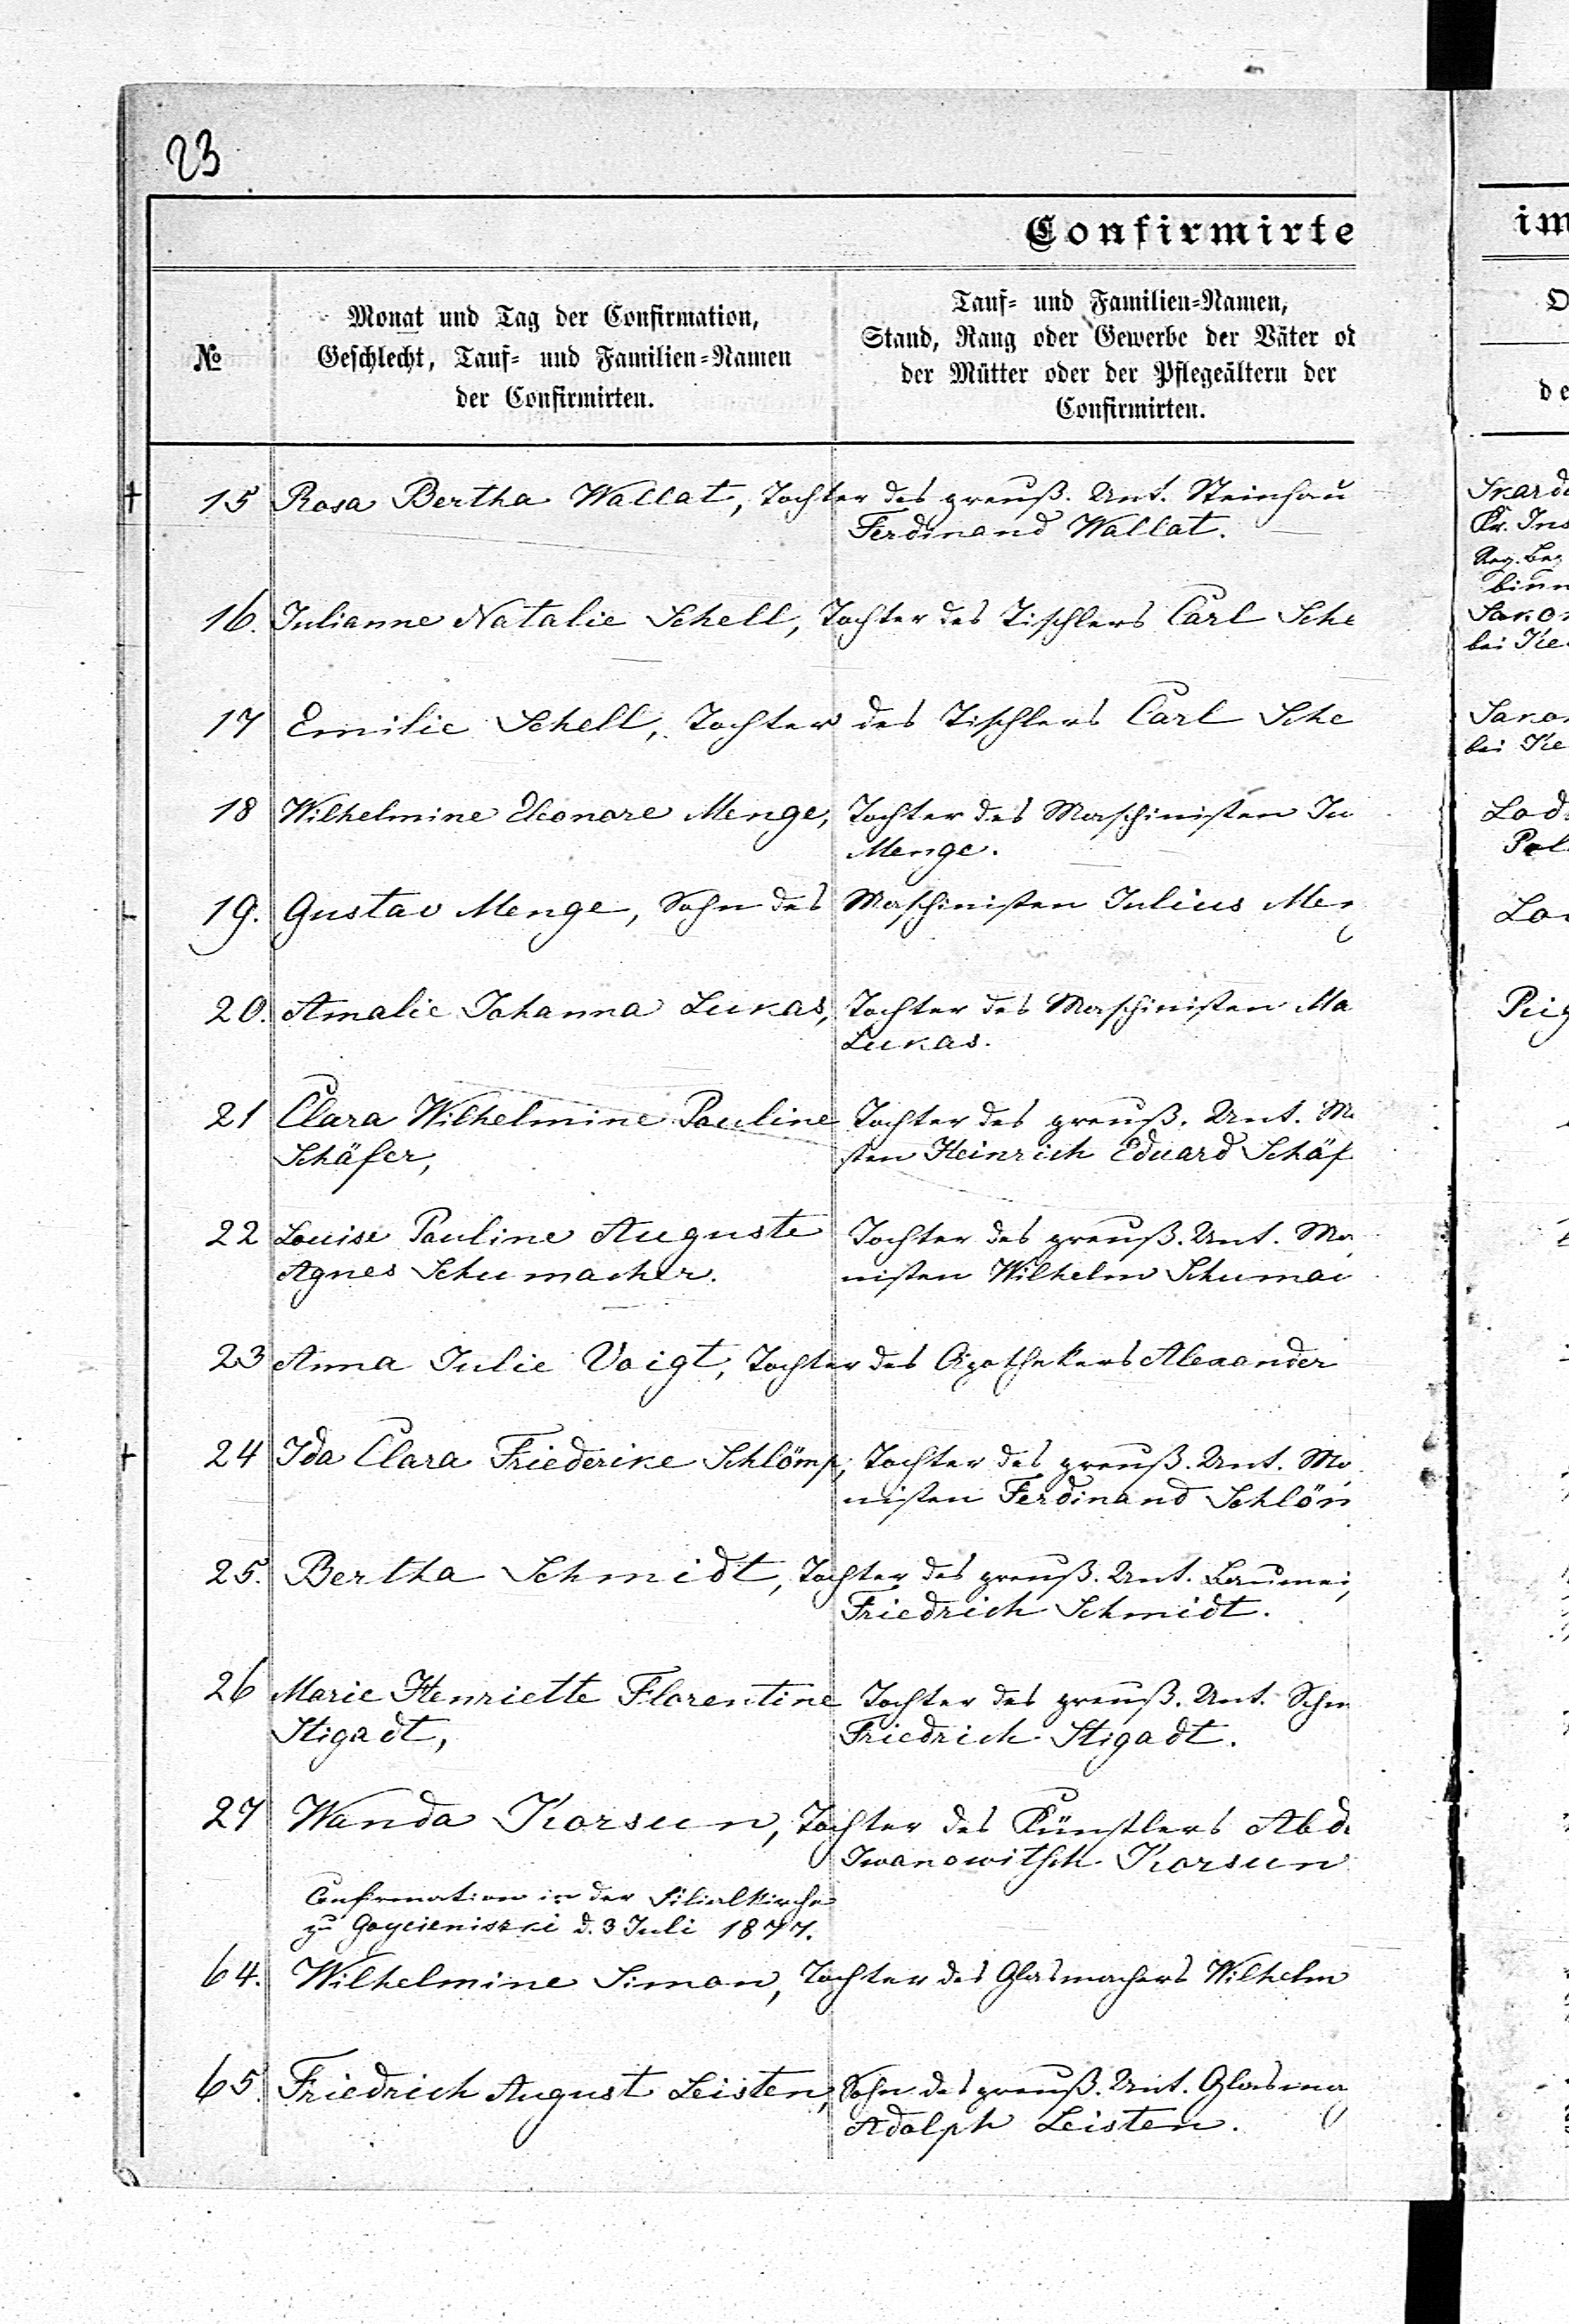 23
Confirmirte
№
Monat und Tag der Confirmation,
Geschlecht, Tauf- und Familien-Namen
der Confirmirten.
Tauf- und Familien-Namen,
Stand, Rang oder Gewerbe der Väter od
der Mütter oder der Pflegeältern der
Confirmirten.
15 Rosa Bertha Wallat, Tochter des preuß. Unt. Steinhau
Ferdinand Wallat.
16. Julianne Natalie Schell, Tochter des Tischlers Carl Sche
17 Emilie Schell, Tochter des Tischlers Carl Sche
18 Wilhelmine Eleonore Menge, Tochter des Maschinisten Ju
Menge.
19. Gustav Menge, Sohn des Maschinisten Julius Men
20. Amalie Johanna Lukas, Tochter des Maschinisten Ma
Lukas.
21 Clara Wilhelmine Pauline Tochter des preuß. Unt. Ma
Schäfer, sten Heinrich Eduard Schäf
22 Louise Pauline Auguste Tochter des preuß. Unt. Ma
Agnes Schumacher. nisten Wilhelm Schumac
23 Anna Julie Voigt, Tochter des Apothekers Alexander
24 Ida Clara Friederike Schlömp, Tochter des preuß. Unt. Ma
nisten Ferdinand Schlöm
25. Bertha Schmidt, Tochter des preuß. Unt. Baumei
Friedrich Schmidt.
26 Marie Henriette Florentine Tochter des preuß. Unt. Schm
Stigadt, Friedrich Stigadt.
27 Wanda Korsun, Tochter des Künstlers Abd
Iwanowitsch Korsun
Confirmation in der Filialkirche
zu Goycieniszki d. 3 Juli 1877.
64. Wilhelmine Simon, Tochter des Glasmachers Wilhelm
65. Friedrich August Leisten, Sohn des preuß. Unt. Glasma
Adolph Leisten.
im
O
de
Kr. Ins
Reg. Be
binn
bei Ke
bei Ke
Lod
Pol